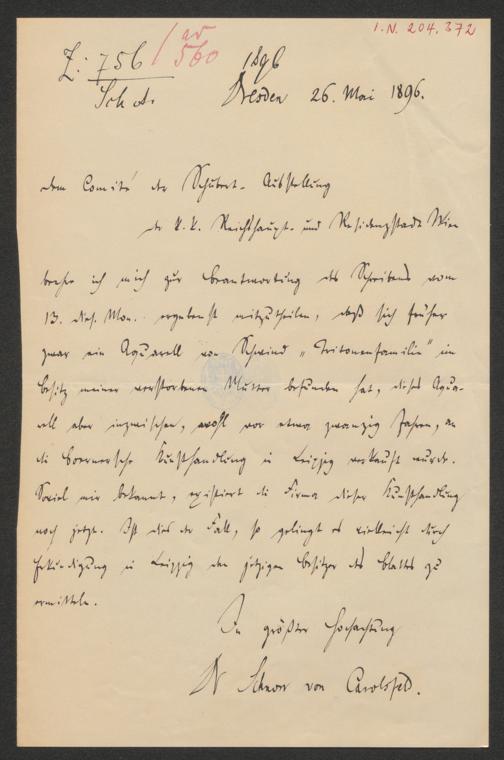 I.N. 204.372
Z: 756 / ad 560 1896
Sch. A.
Dresden 26. Mai 1896.
dem Comité der Schubert-Ausstellung
der k. k. Reichshaupt- und Residenzstadt Wien
beehre ich mich zur Beantwortung des Schreibens vom
13. dies. Mon. ergebenst mitzutheilen, daß sich früher
zwar ein Aquarell von Schwind „Tritonenfamilie" im
Besitz meiner verstorbenen Mutter befunden hat, dieses Aqua-
rell aber inzwischen, wohl vor etwa zwanzig Jahren, an
die Boernersche Kunsthandlung in Leipzig verkauft wurde.
Soviel mir bekannt, existiert die Firma dieser Kunsthandlung
noch jetzt. Ist dies der Fall, so gelingt es vielleicht durch
Erkundigung in Leipzig den jetzigen Besitzer des Blattes zu
ermitteln.
In größter Hochachtung
Dr Schnorr von Carolsfeld.